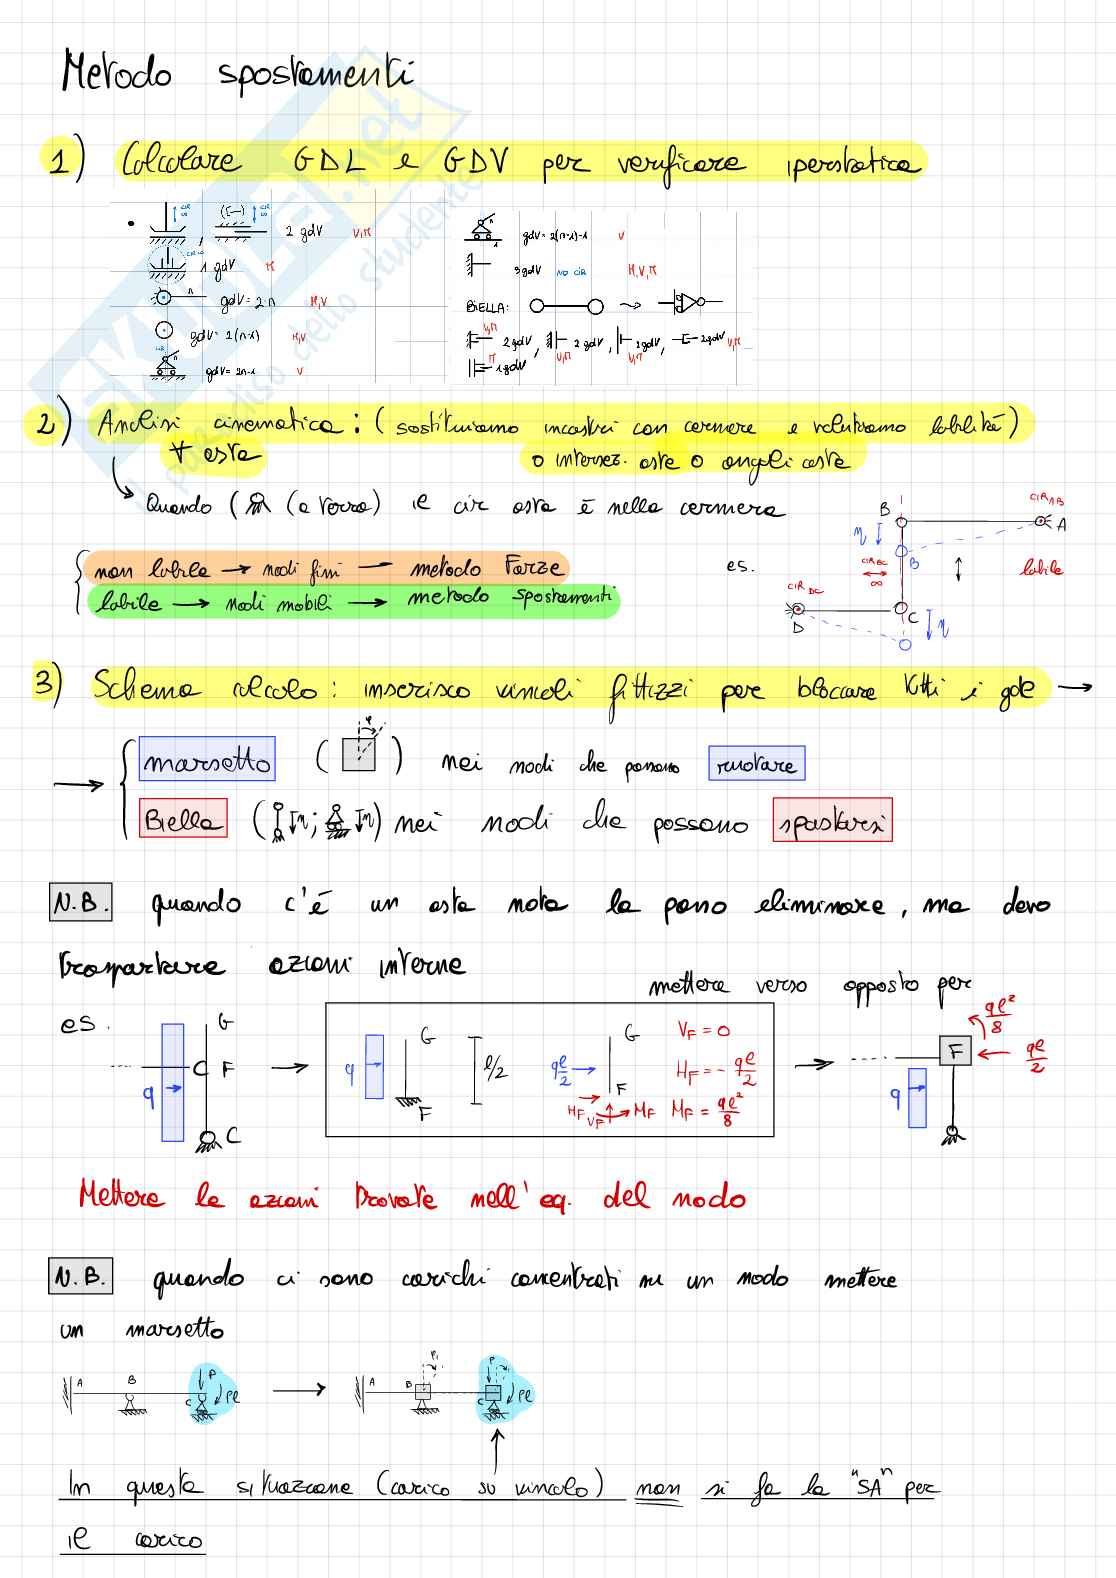 Metodo spostamenti
1) Calcolare GDL e GDV per verificare iperstatica
CIR ∞
CIR ∞
, 2 gdV V,M
1 gdV M
n gdV = 2·n H,V
gdV = 2(n-1) H,V
CIR n gdV = 2n-1 V
n 1 gdV = 2(n-1)-1 V
3gdV NO CIR H,V,M
BIELLA:
V,M 2gdV, V,M 2gdV, V,M 2gdV, 2gdV V,M
M 1gdV
2) Analisi cinematica: (sostituiamo incastri con cerniere e valutiamo labilità)
∀ asta o intersez. aste o angoli aste
Quando (a terra) il cir asta è nella cerniera
non labile → nodi fissi — metodo Forze
labile → nodi mobili → metodo spostamenti
es.
B CIR AB A
η B
CIR BC ∞ labile
CIR DC
D C η
3) Schema calcolo: inserisco vincoli fittizzi per bloccare tutti i gdl →
→ morsetto ( φ ) nei nodi che possono ruotare
Biella ( ↓η ; ↓η ) nei nodi che possono spostarsi
N.B. quando c'è un asta nota la posso eliminare, ma devo
trasportare azioni interne
mettere verso opposto per
es.
q G C F C
q G F l/2
ql/2 G F HF VF MF
VF = 0
HF = - ql/2
MF = ql²/8
F ql²/8 ql/2 q
Mettere le azioni trovate nell'eq. del nodo
N.B. quando ci sono carichi concentrati su un nodo mettere
un morsetto
A B C P Pl
A B φ1 C P Pl
In questa situazione (carico su vincolo) non si fa la "SA" per
il carico